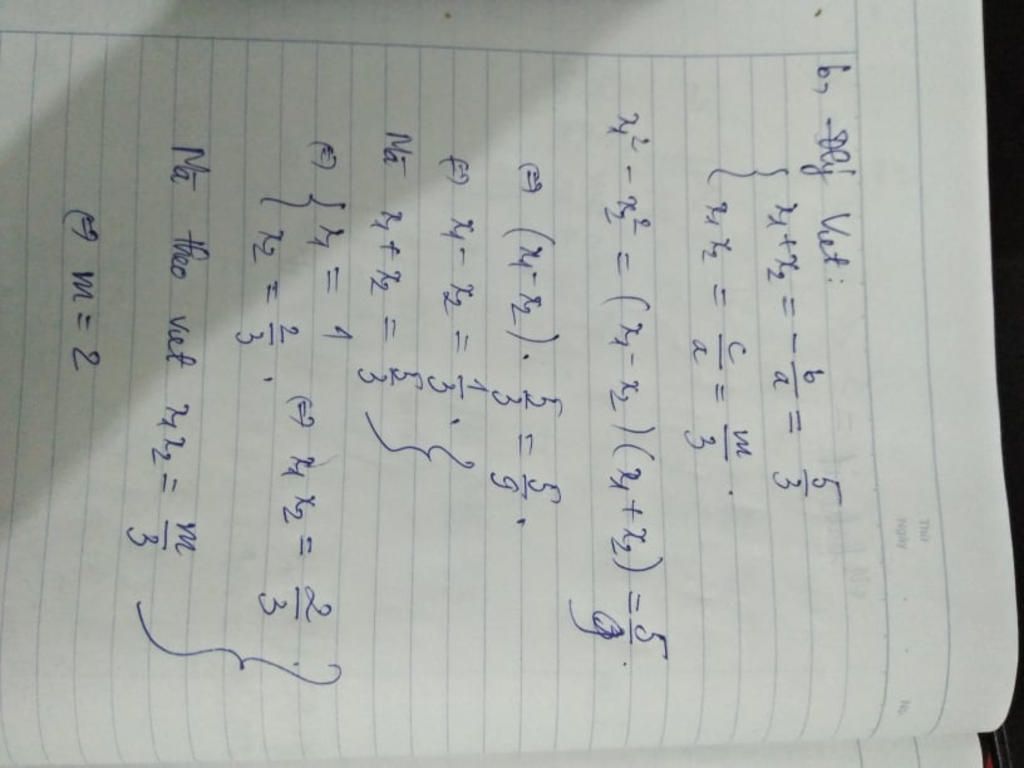 b, Viet:
{ x₁ + x₂ = -b/a = 5/3
{ x₁ x₂ = c/a = m/3 .
x₁² - x₂² = (x₁ - x₂)(x₁ + x₂) = 5/9 .
⇔ (x₁ - x₂) . 5/3 = 5/9 .
⇔ x₁ - x₂ = 1/3 . }
Mà x₁ + x₂ = 5/3 }
⇔ { x₁ = 1
{ x₂ = 2/3 . ⇔ x₁ x₂ = 2/3 }
Mà theo viet x₁x₂ = m/3 }
⇔ m = 2
Thứ
Ngày
No.